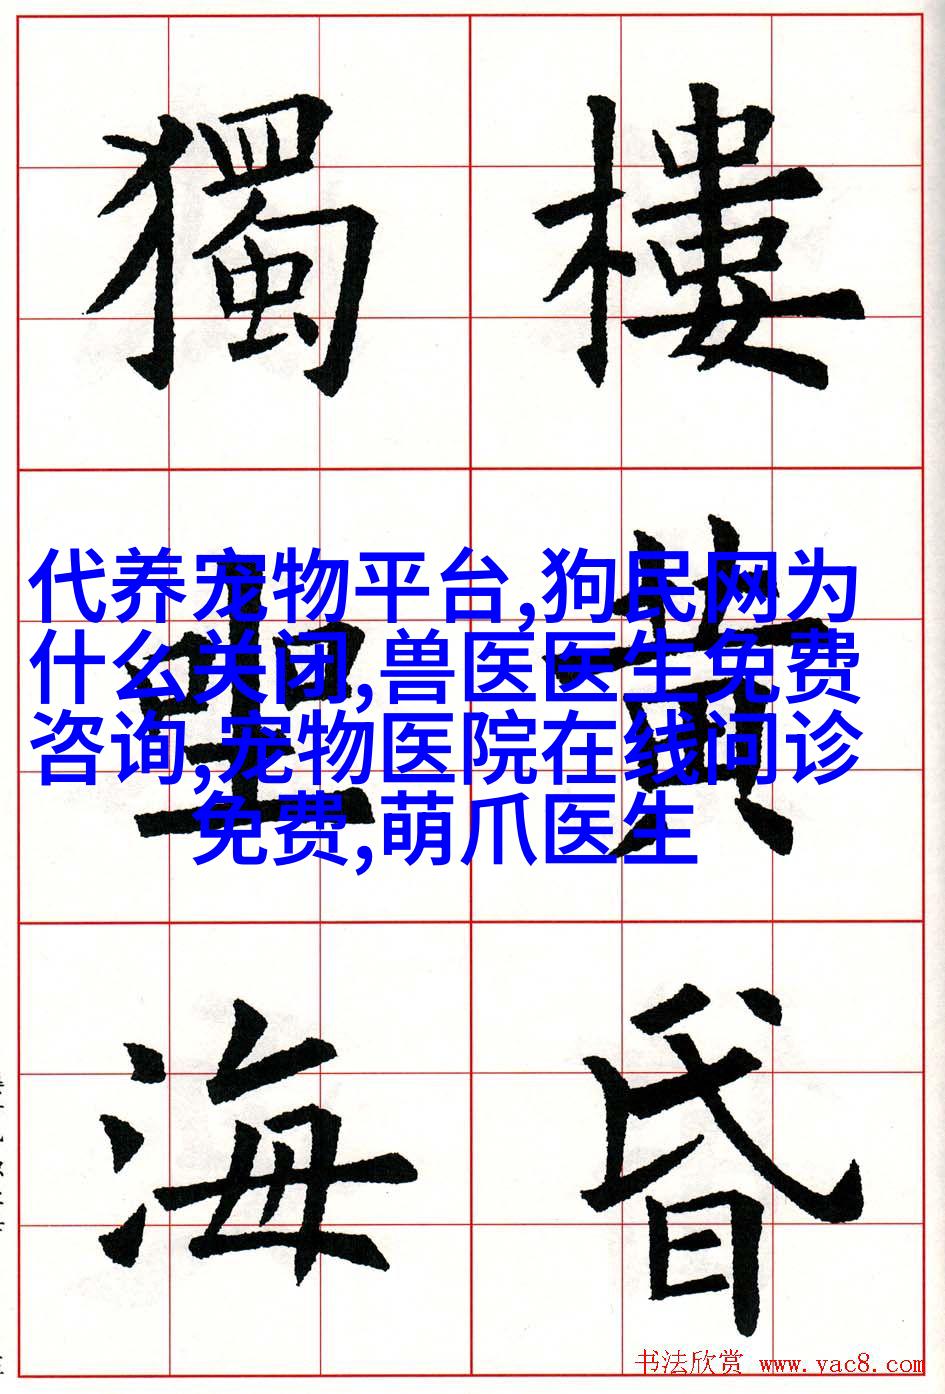 樓黃昏
獨
海
代养宠物平台,狗民网为
什么关闭,兽医医生免费
咨询,宠物医院在线问诊
免费,萌爪医生
书法欣赏 www.yac8.com